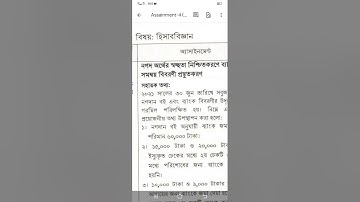 Assainment-4(
বিষয়: হিসাববিজ্ঞান
অ্যাসাইনমেন্ট
নগদ অর্থের স্বচ্ছতা নিশ্চিতকরণে ব্যা
সমন্বয় বিবরণী প্রস্তুতকরণ
সহায়ক তথ্য:
২০২১ সালের ৩০ জুন তারিখে
নগদান বই এবং ব্যাংক বিবরণীর উদ্বৃ
গরমিল পরিলক্ষিত হয়। নিম্নে
প্রয়োজনীয় তথ্য উপস্থাপন করা হলো:
১। নগদান বই অনুযায়ী ব্যাংক জমা
পরিমান ৬০,০০০ টাকা।
২। ১৫,০০০ টাকা ও ২০,০০০ টাকা
ইস্যুকৃত চেকের মধ্যে ২য় চেকটি
মধ্যে পরিশোধের জন্য ব্যাংকে
হয়নি।
৩। ১০,০০০ টাকা ও ৯,০০০ টাকার